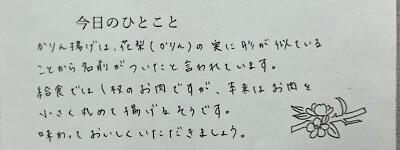 今日のひとこと
かりん揚げは、花梨(かりん)の実に形が似ている
ことから名前がついたと言われています。
給食では1枚のお肉ですが、本来はお肉を
小さく丸めて揚げるそうです。
味わっておいしくいただきましょう。